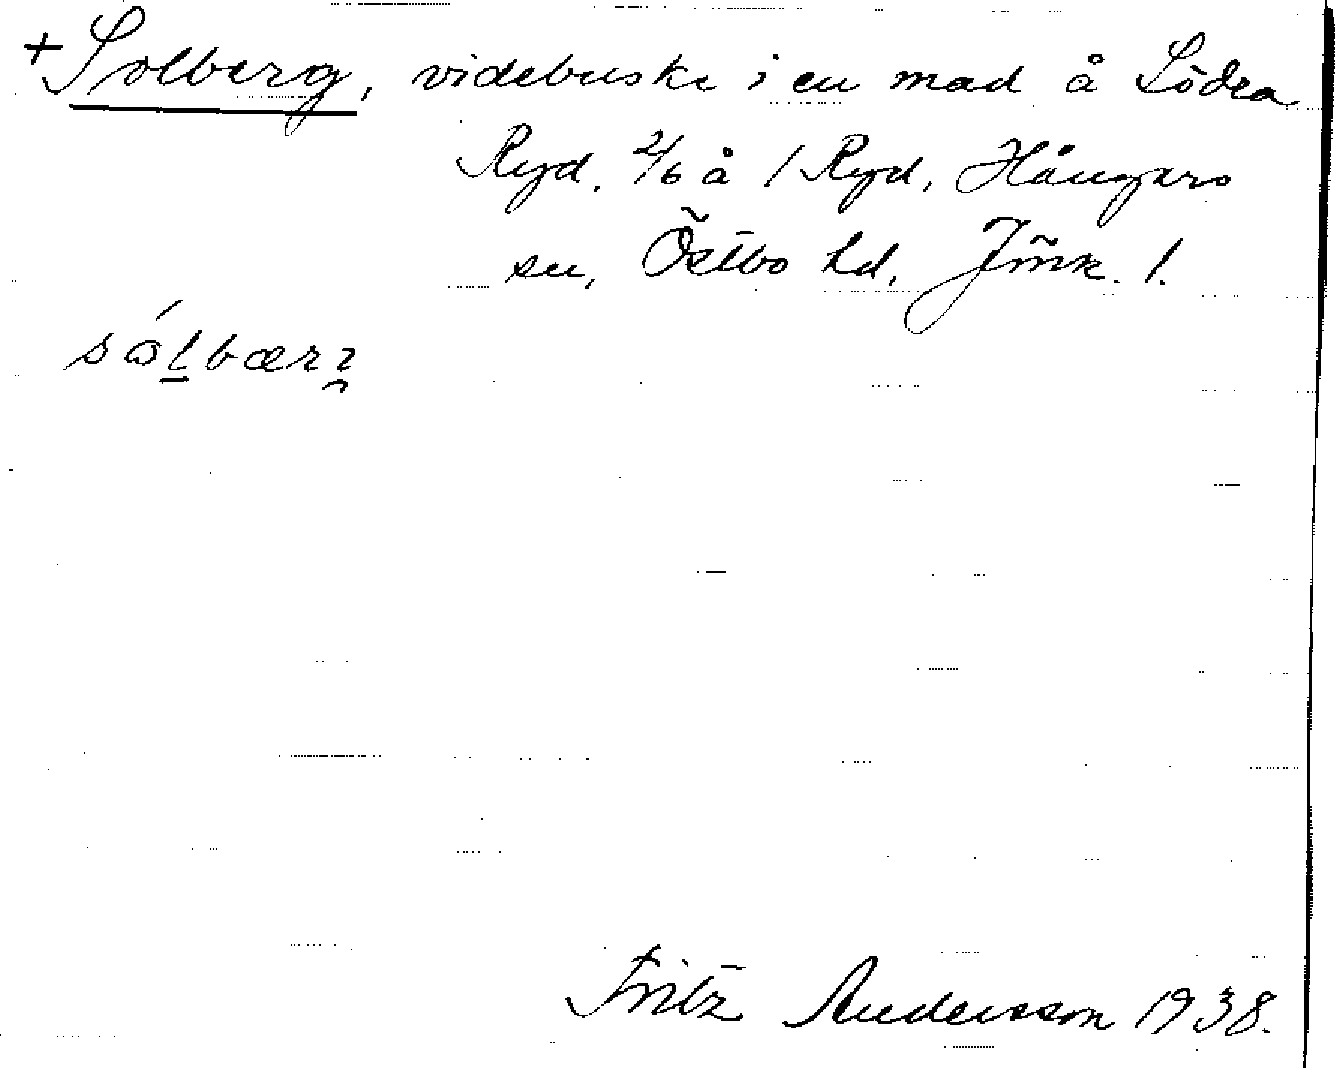 + Solberg, videbuske i en mad å Södra
Ryd, 2/6 å 1 Ryd, Hångers
sn, Östbo hd, Jönk. l.
sólbærɿ
Fritz Andersson 1938.